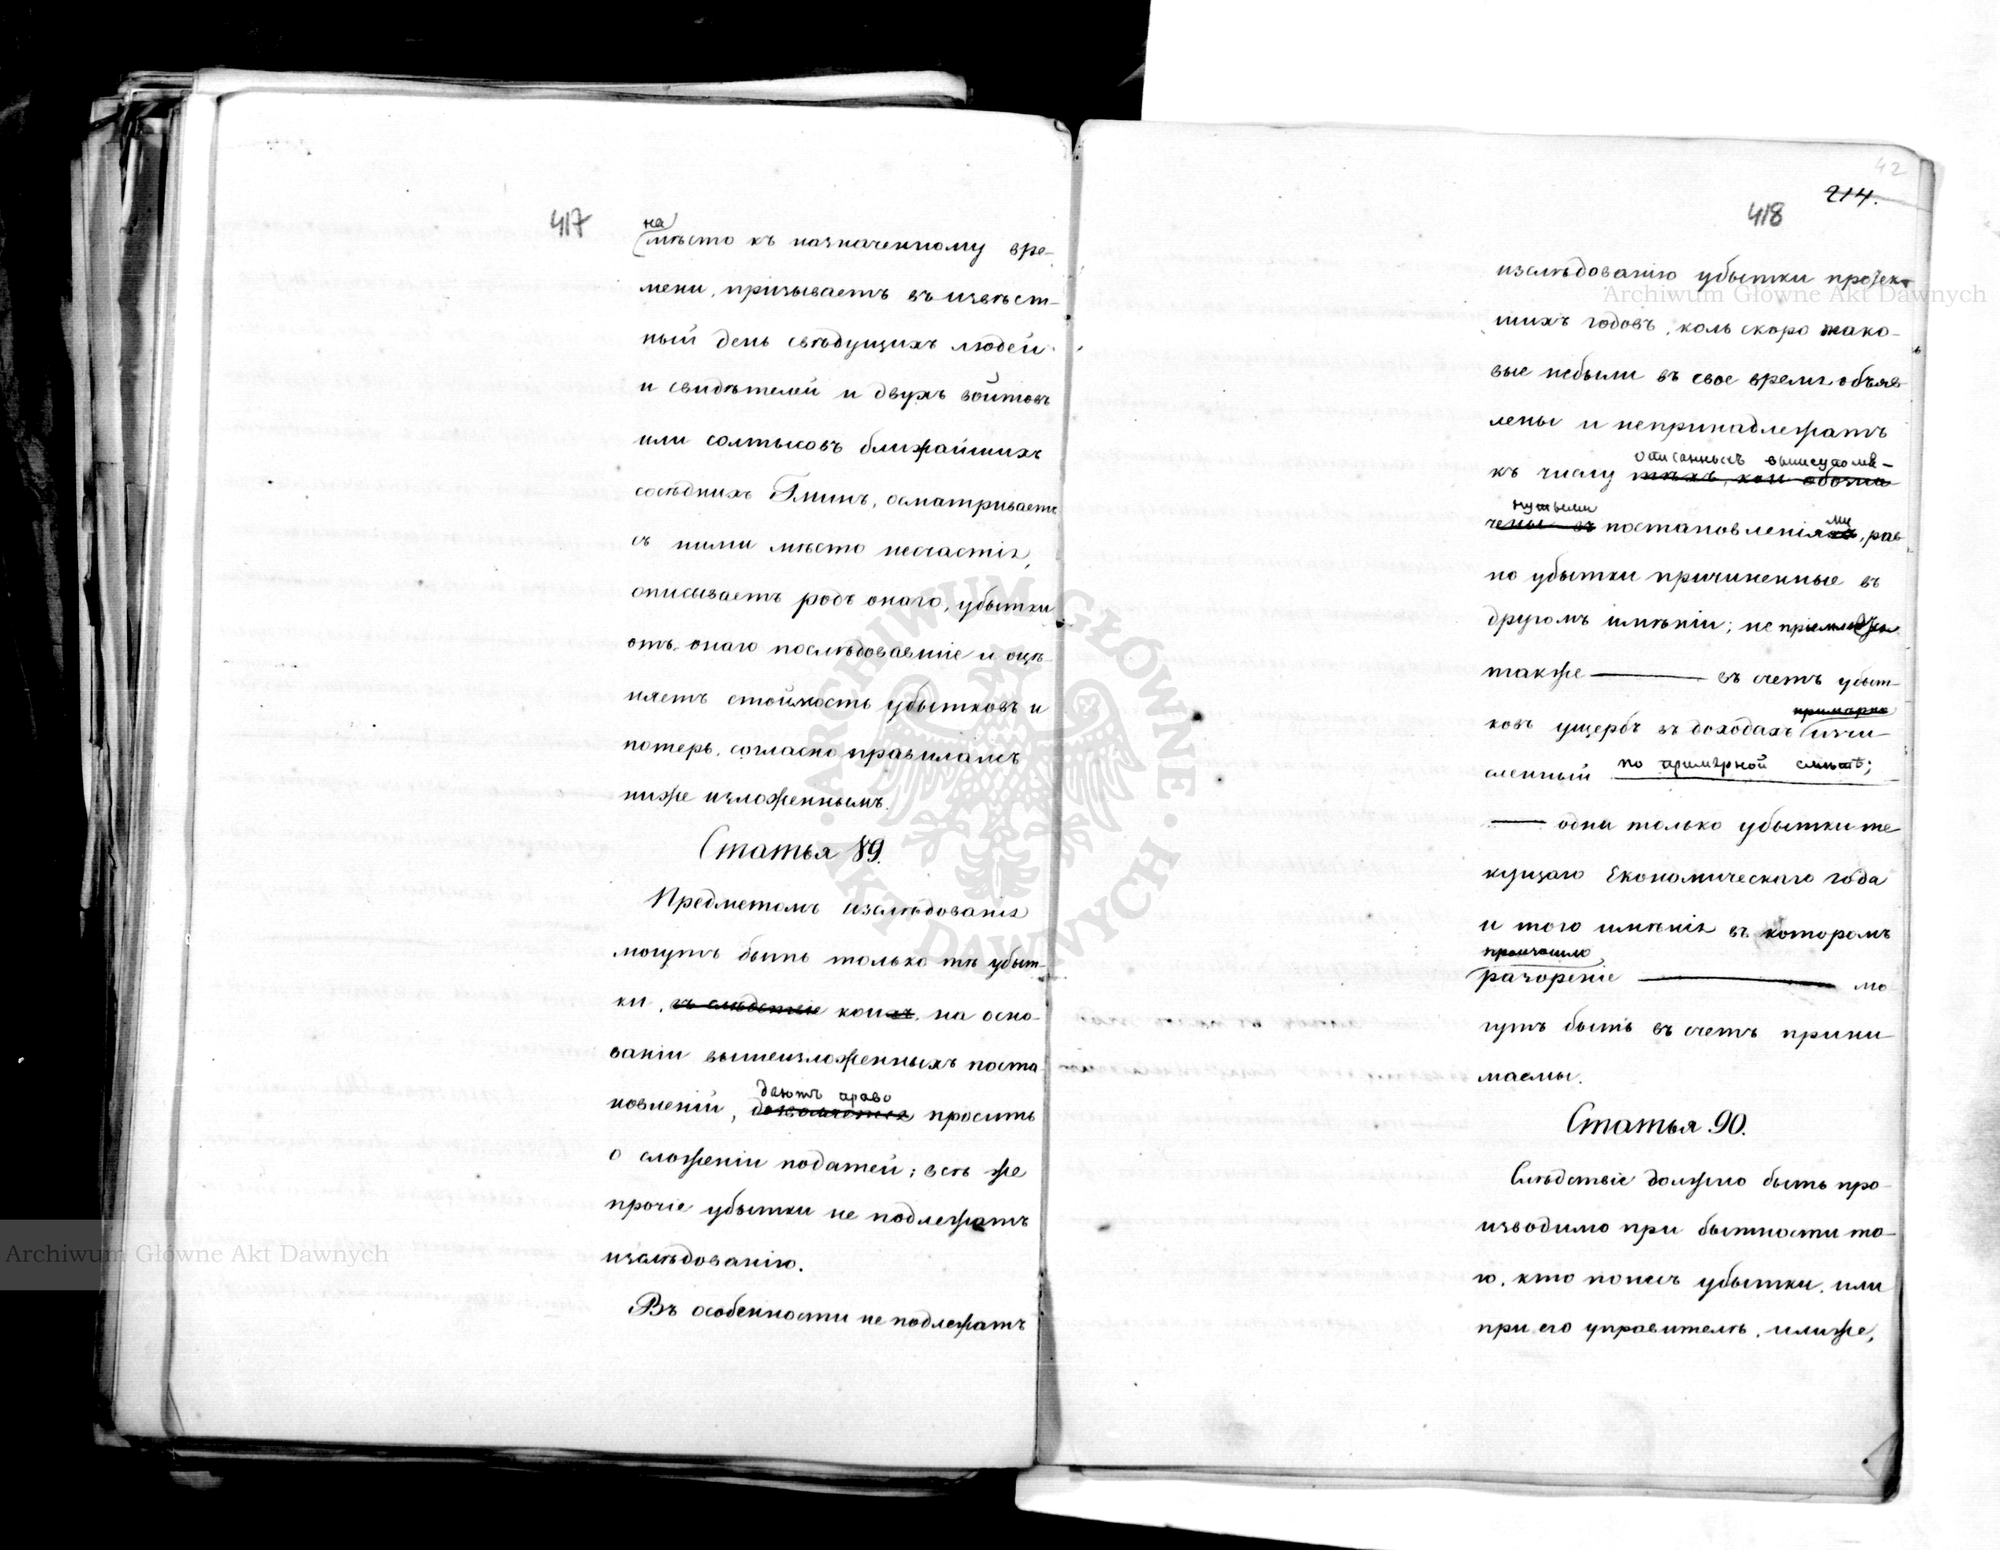 417
на
мѣсто къ назначенному вре-
мени, призываетъ въ извѣст-
ный день свѣдущихъ людей
и свидѣтелей и двухъ войтовъ
или солтысовъ ближайшихъ
сосѣднихъ Гминъ, осматриваетъ
съ ними мѣсто несчастія,
описываетъ родъ онаго, убытки
отъ онаго послѣдовавшіе и оцѣ-
няетъ стоимость убытковъ и
потерь, согласно правиламъ
ниже изложеннымъ.
Статья 89.
Предметомъ изслѣдованія
могутъ быть только тѣ убыт-
ки, въ слѣдствіе коихъ, на осно-
ваніи вышеизложенныхъ поста-
даютъ право
новленій, дозволяется просить
о сложеніи податей; всѣ же
прочіе убытки не подлежатъ
изслѣдованію.
Въ особенности не подлежатъ
42
214.
418
изслѣдованію убытки протек-
шихъ годовъ, коль скоро тако-
вые небыли въ свое время объяв-
лены и непринадлежатъ
описанныхъ вышеупомя-
къ числу тѣхъ, кои обозна
нутыми ми
чены въ постановленіяхъ, рав-
но убытки причиненные въ
другомъ имѣніи; не
также въ счетъ убыт-
ковъ ущербъ въ доходахъ исчи-
сленный по примѣрной смѣтѣ;
одни только убытки те-
кущаго Економическаго года
и того имѣнія въ которомъ
произошло
разореніе мо-
гутъ быть въ счетъ прини-
маемы.
Статья 90.
Слѣдствіе должно быть про-
изводимо при бытности то-
го, кто понесъ убытки, или
при его управителѣ, илиже,
Archiwum Główne Akt Dawnych
Archiwum Główne Akt Dawnych
ARCHIWUM GŁÓWNE AKT DAWNYCH